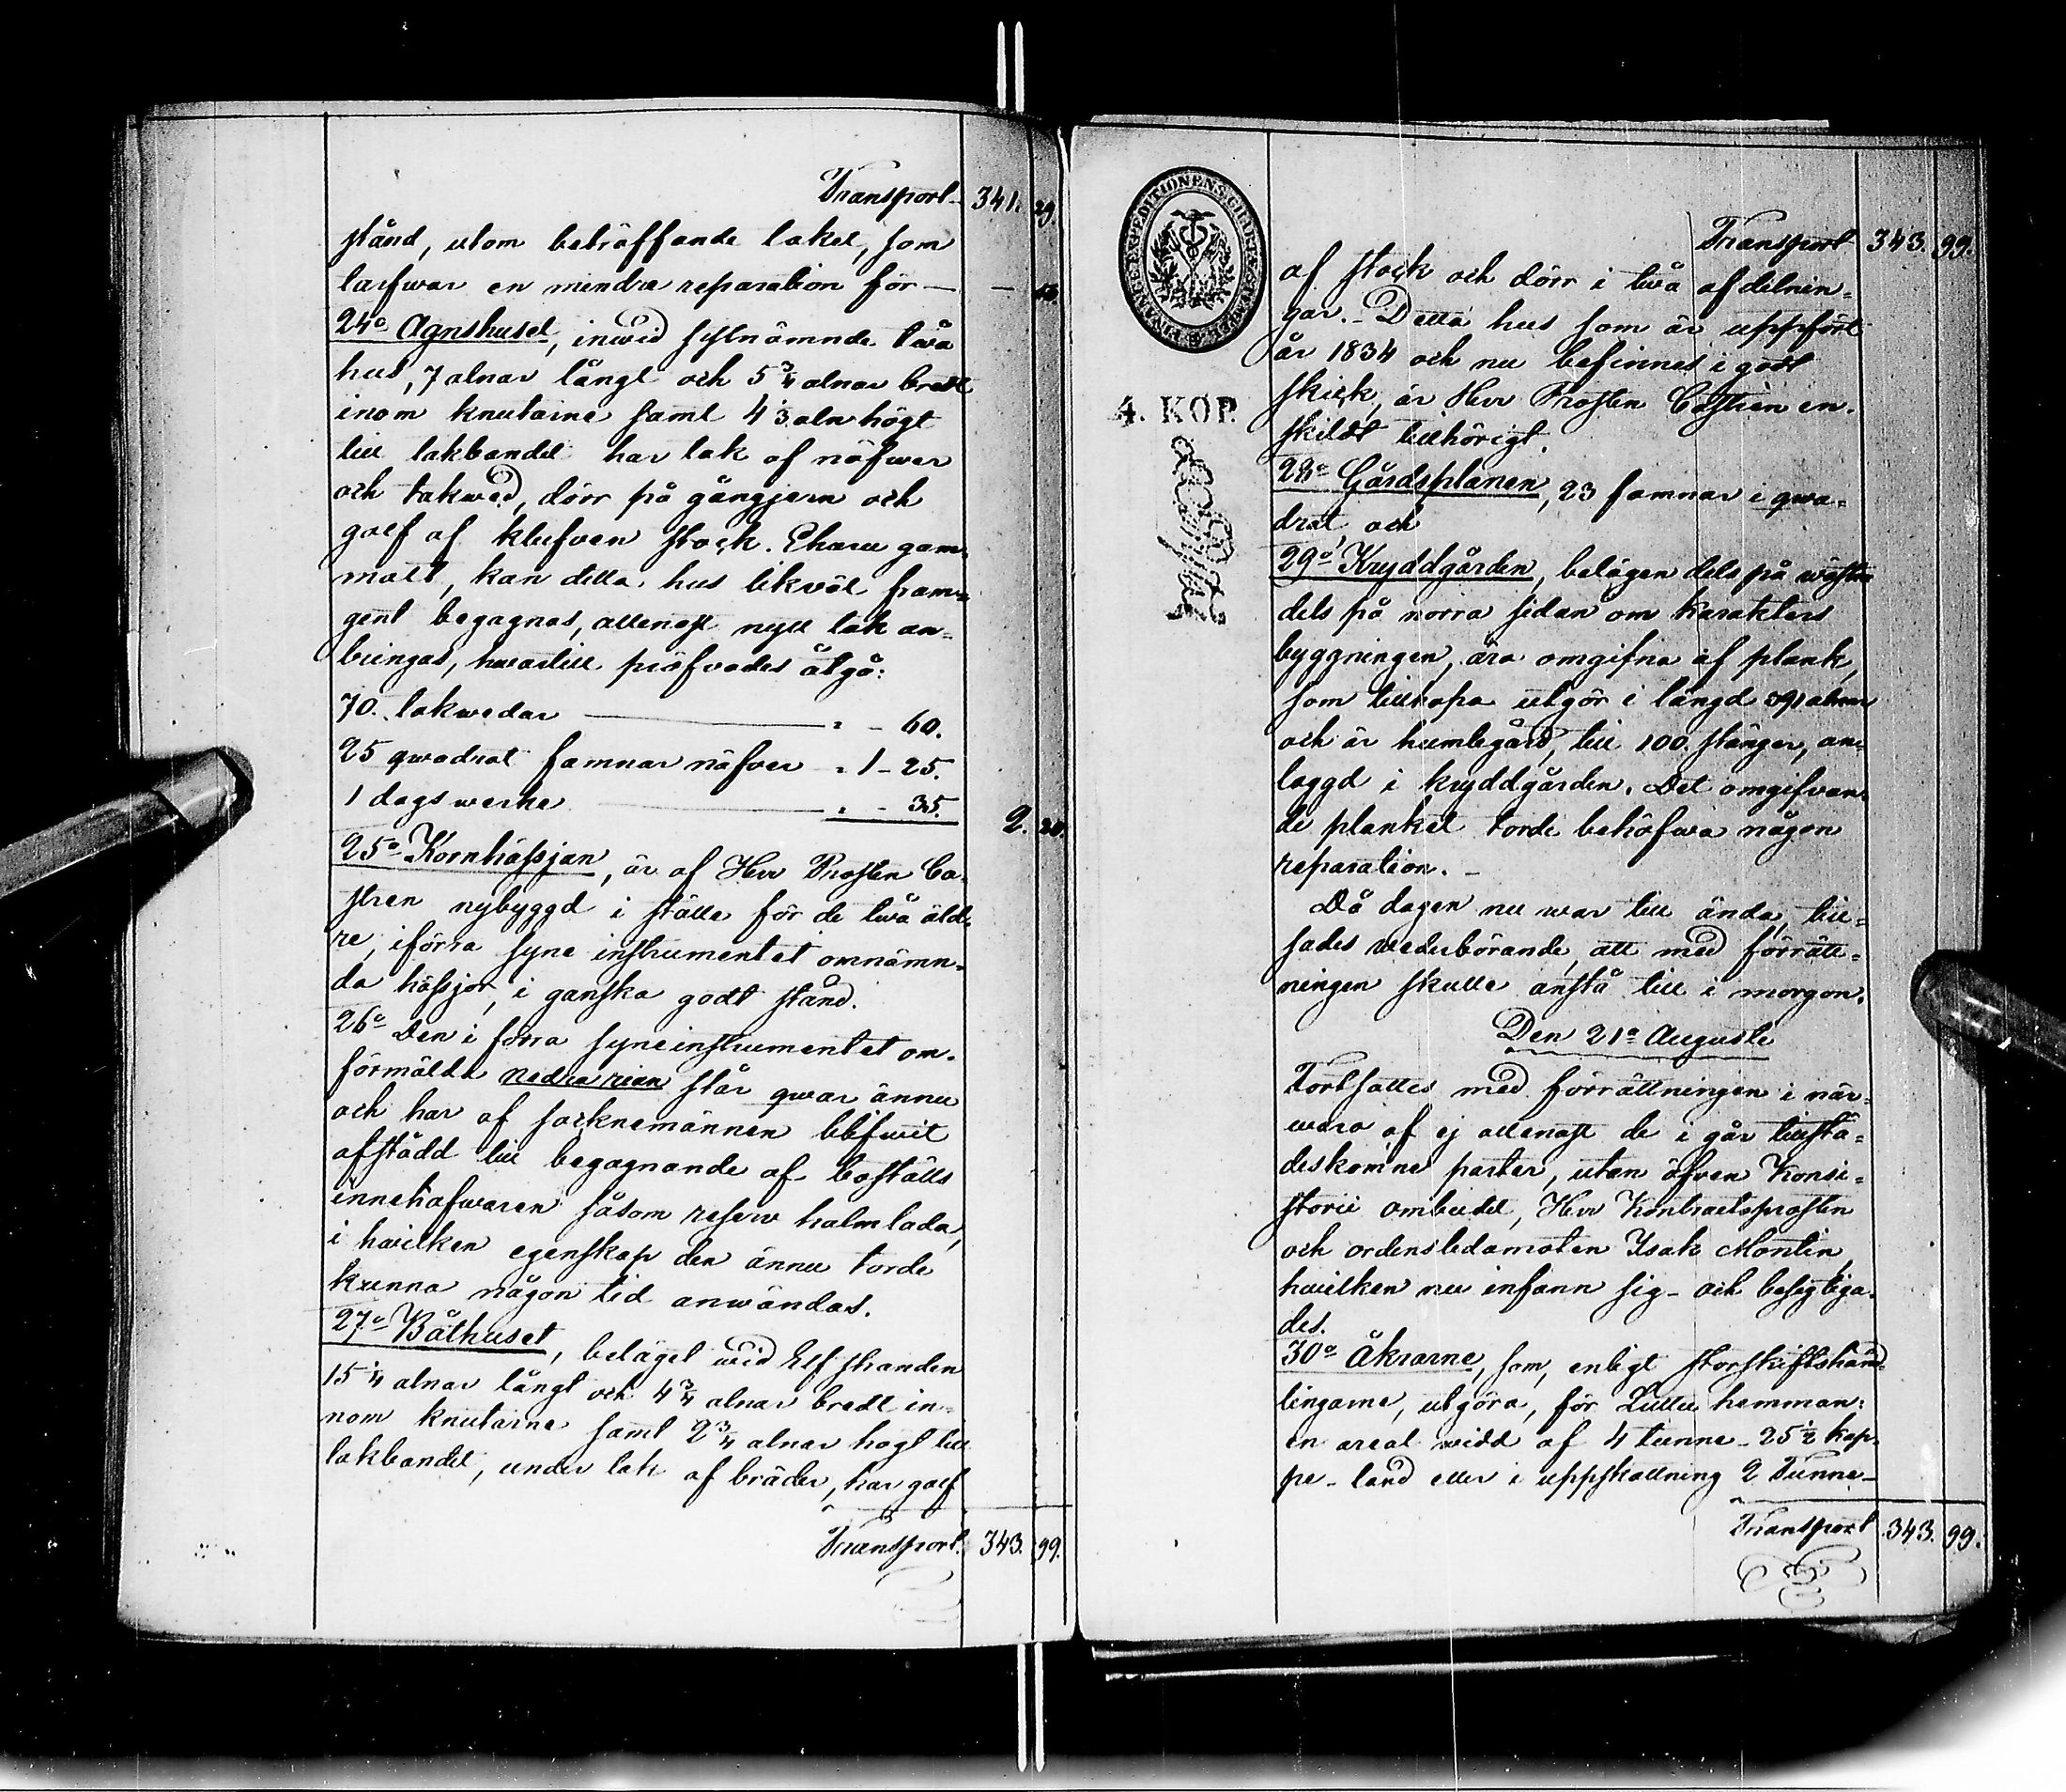 Transport 341. 29.
stånd, utom beträffande taket, som
tarfwar en mindre reparation för — — 50.
24o Agnshuset, inwid sistnämnde twå
hus, 7 alnar långt och 5 3/4 alnar bredt
inom knutarne samt 4 1/3 aln högt
till takbandet har tak af näfwer
och takwed, dörr på gångjern och
golf af klufven stock. Ehuru gam-
malt, kan detta hus likväl fram-
gent begagnas, allenast nytt tak an-
bringas, hwartill pröfvades åtgå:
70. takwedar — " - 60.
25 qwadrat famnar näfver " 1 - 25.
1 dagswerke — " - 35. 2. 20.
25o Kornhässjan, är af Herr Prosten Ca-
stren nybyggd i ställe för de twå äld-
re, i förra syne instrumentet omnämn-
da hässjor, i ganska godt stånd.
26o Den i förra syneinstrumentet om-
förmälda nedra rian står qwar ännu
och har af socknemännen blifwit
afstådd till begagnande af boställs
innehafwaren såsom reserv halmlada,
i hwilken egenskap den ännu torde
kunna någon tid anwändas.
27o Båthuset, beläget wid Elfstranden
15 1/4 alnar långt och 4 3/4 alnar bredt in-
nom knutarne samt 2 3/4 alnar högt till
takbandet, under tak af bräder, har golf
Transport. 343. 99.
FINANCE-EXPEDITIONENS
4. KOP.
Transport 343. 99.
af stock och dörr i twå afdelnin-
gar. - Detta hus som är uppfört
år 1834 och nu befinnes i godt
skick, är Herr Prosten Castrén en-
skildt tillhörigt.
28o Gårdsplanen, 23 famnar i qwa-
drat, och
29o Kryddgården, belägen dels på wästra
dels på norra sidan om karakters
byggningen, ära omgifna af plank,
som tillhopa utgör i längd 391 alnar
och är humlegård, till 100. stänger, an-
laggd i kryddgården. Det omgifvan-
de planket torde behöfwa någon
reparation. -
Då dagen nu war till ända, till-
sades wederbörande, att med förrätt-
ningen skulle anstå till i morgon.
Den 21a Augusti
Fortsattes med förrättningen i när-
waro af ej allenast de i går tillstä-
deskomne parter, utan äfven Konsi-
storii ombudet, Herr Kontractsprosten
och ordensledamoten Isak Montin,
hwilken nu infann sig - och besigtiga-
des.
30o Åkrarne, som, enligt storskiftshand-
lingarne, utgöra, för hemman:
en areal widd af 4 tunne- 25 1/2 kap-
pe- land eller i uppskattning 2 Tunne-
Transport 343. 99.